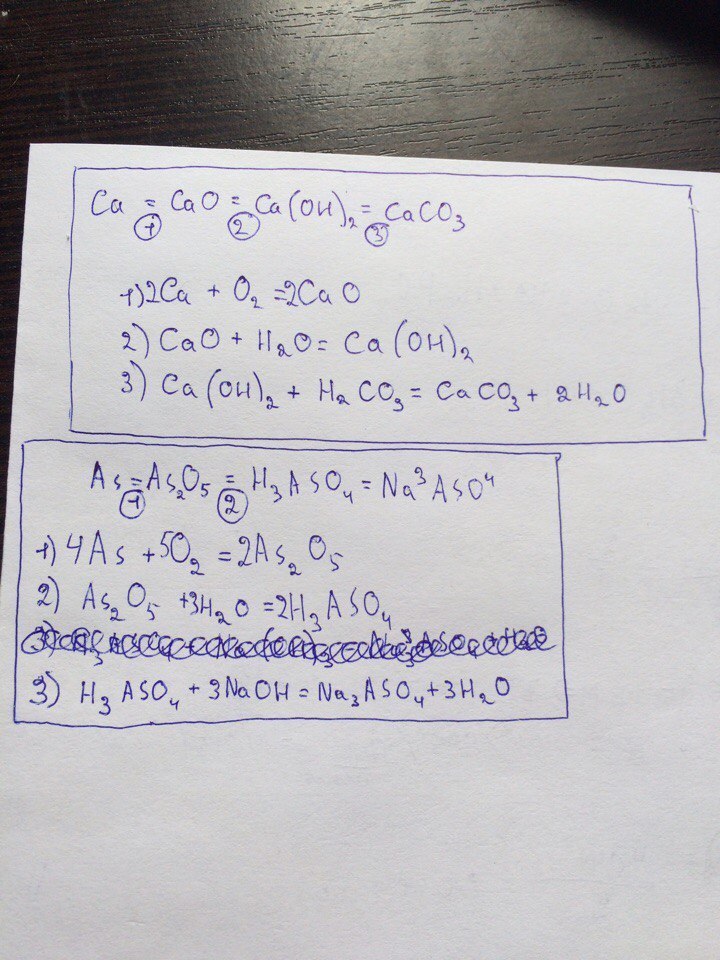 Ca = CaO = Ca(OH)₂ = CaCO₃
1 2 3
1) 2Ca + O₂ = 2CaO
2) CaO + H₂O = Ca(OH)₂
3) Ca(OH)₂ + H₂CO₃ = CaCO₃ + 2H₂O
As = As₂O₅ = H₃ASO₄ = Na³ASO⁴
1 2
1) 4As + 5O₂ = 2As₂O₅
2) As₂O₅ + 3H₂O = 2H₃ASO₄
3) H₃ASO₄ + 3NaOH = Na₃ASO₄ + 3H₂O